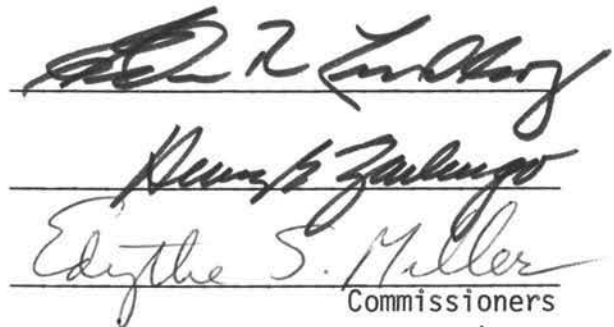 R Lundborg
Henry E Zarlengo
Edythe S. Miller
Commissioners